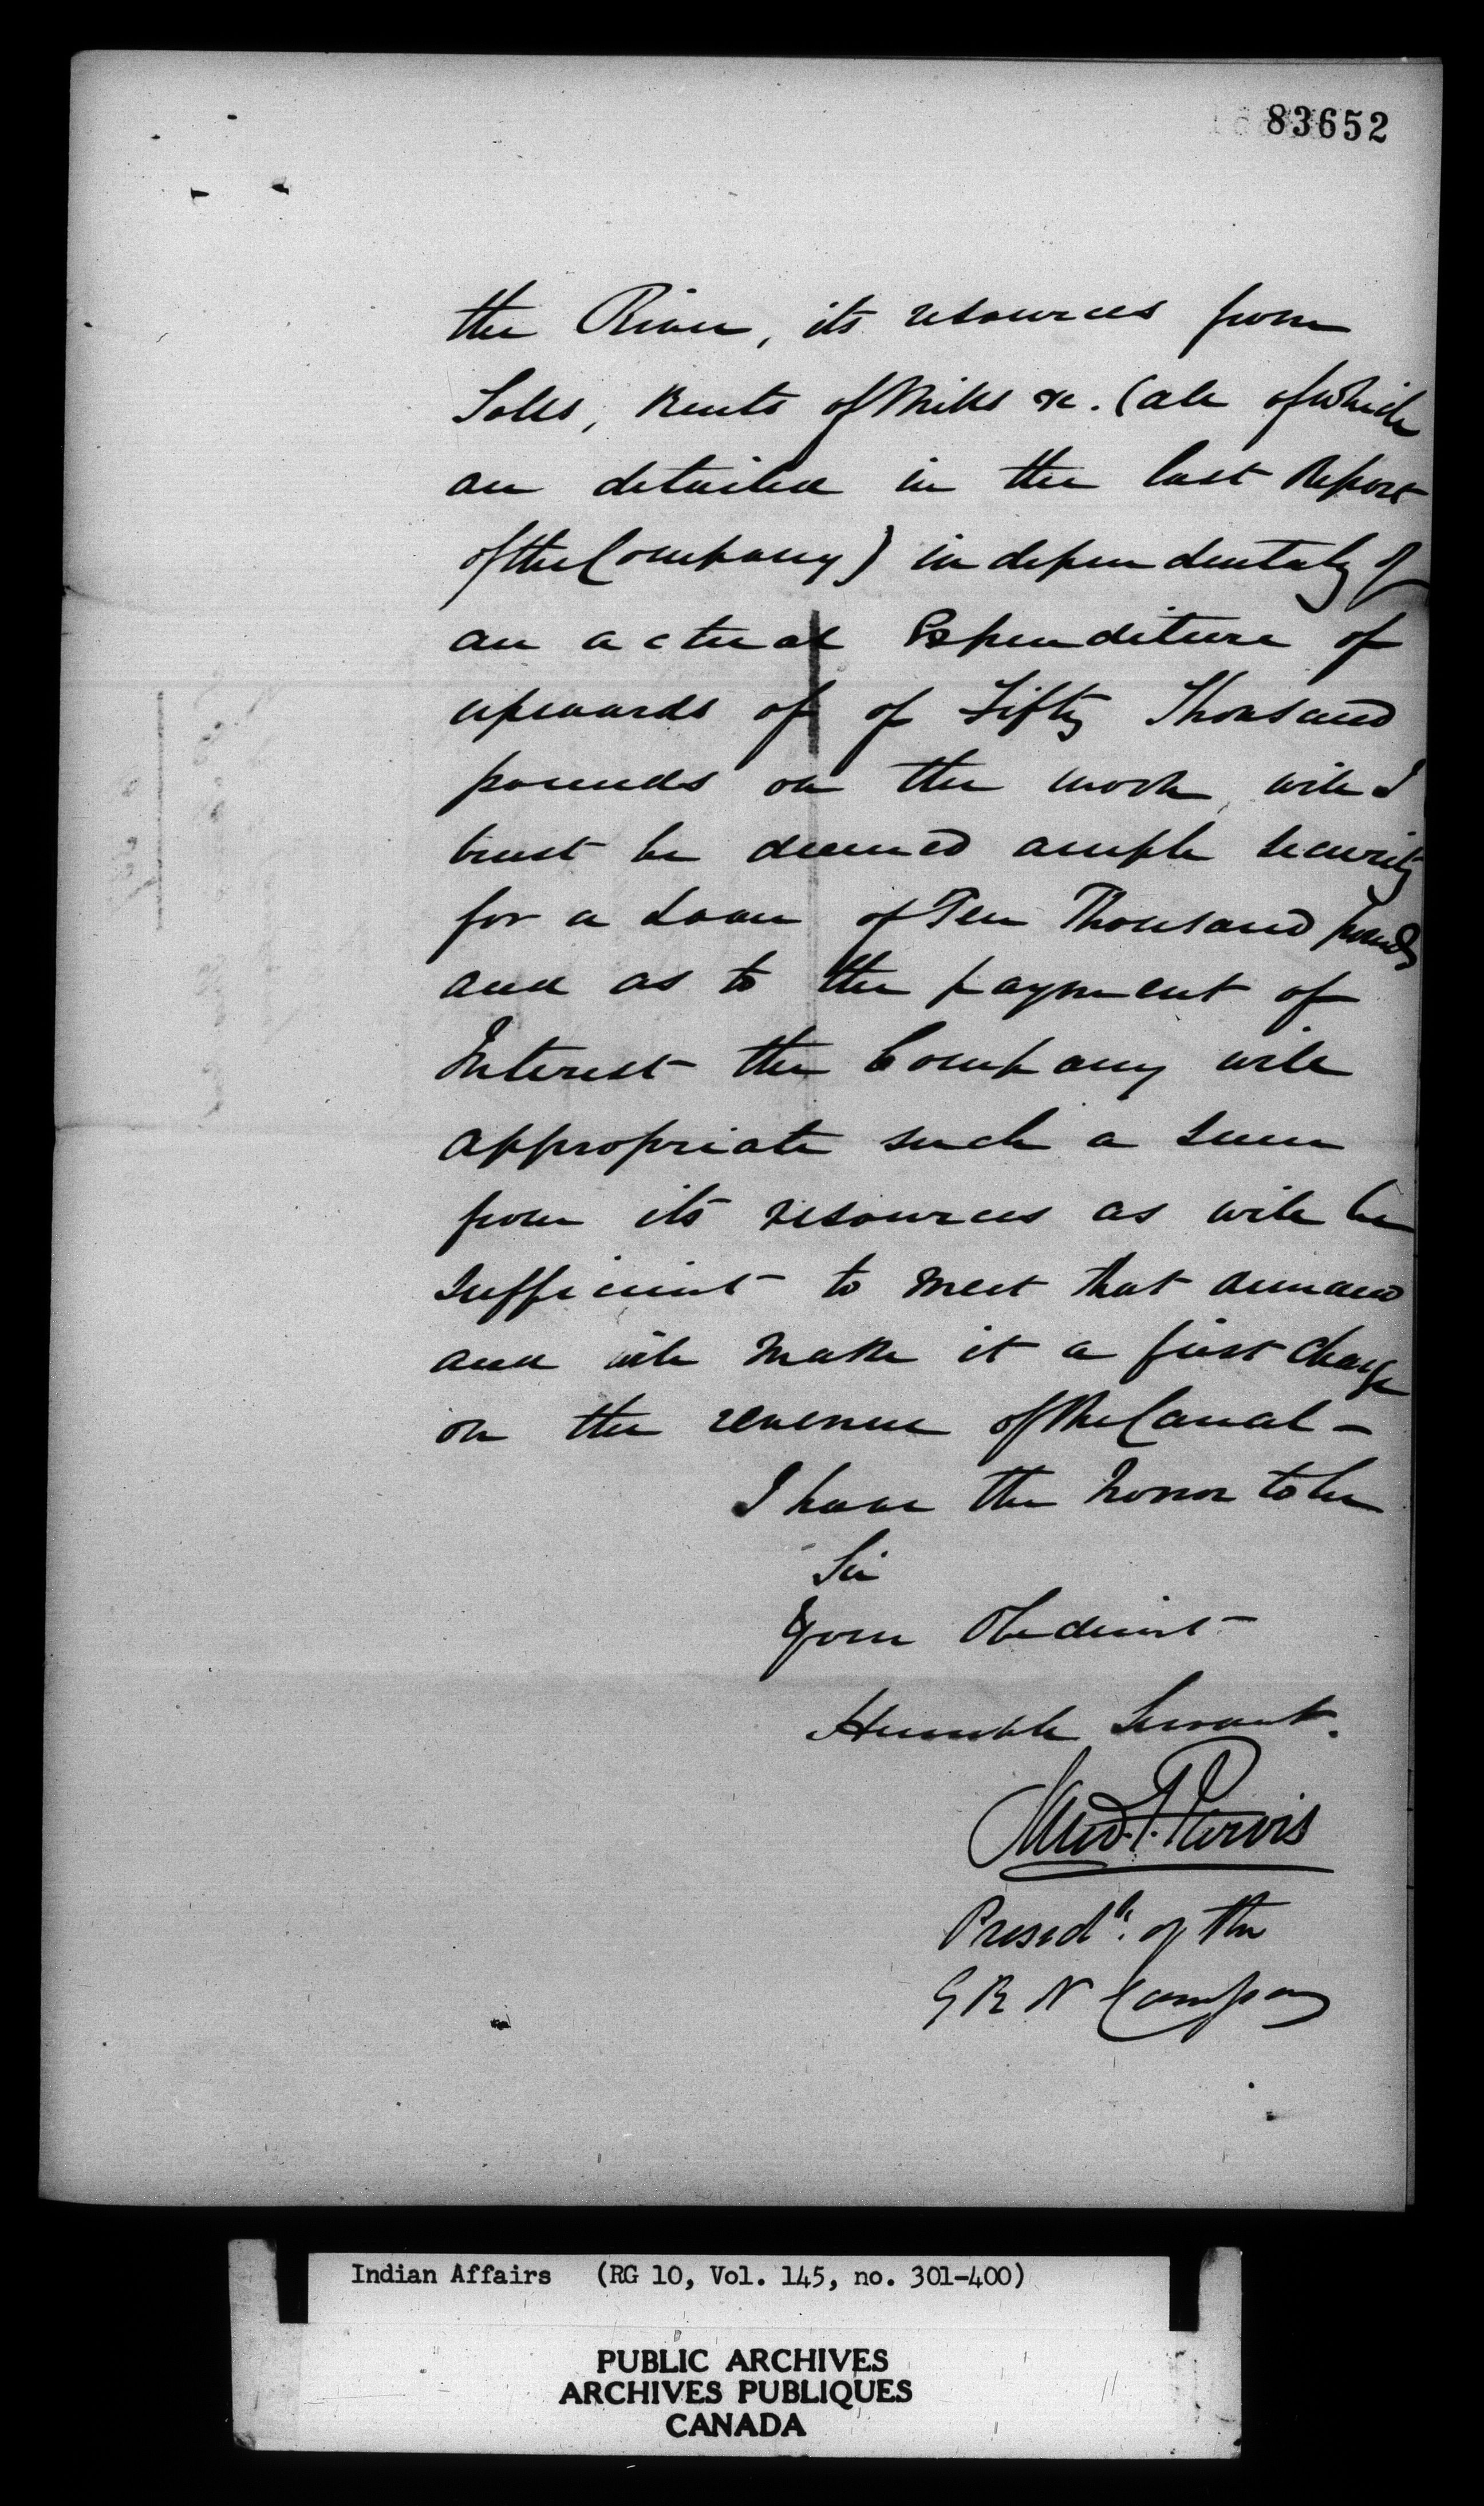 83652
the River, its resources from
Tolls, Rents of Mills &c. (all of which
are detailed in the last Report
of the Company) independentaly of
an actual Expenditure of
upwards of of Fifty Thousand
pounds on the work, will I
trust be deemed ample security
for a Loan of Ten Thousand pounds
and as to the payment of
Interest the Company will
appropriate such a sum
from its resources as will be
sufficient to meet that demand
and will make it a first charge
on the revenue of the Canal –
I have the honor to be
Sir
Your Obedient
Humble Servant.
Jarvis
Presedt. of the
G R N Company
Indian Affairs (RG 10, Vol. 145, no. 301-400)
PUBLIC ARCHIVES
ARCHIVES PUBLIQUES
CANADA